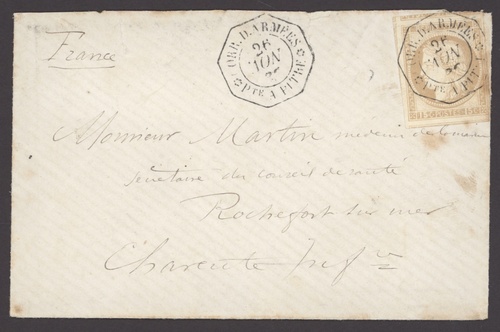 France
CORR. D. ARMÉES
PTE A PITRE
CORR. D. ARMÉES
PTE A PITRE
Monsieur Martin médecin de la marine
secrétaire du conseil de santé
Rochefort sur mer
Charente Infre